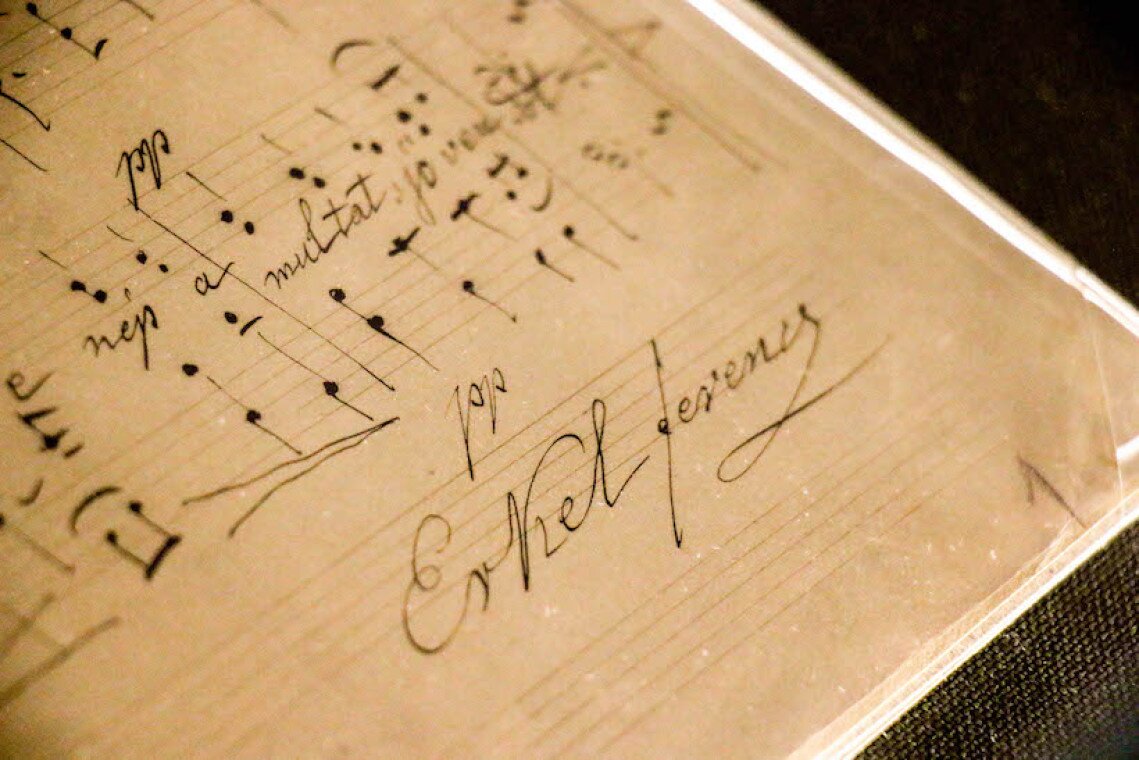 pp
nép a multat s jövendőt
pp
Erkel Ferencz